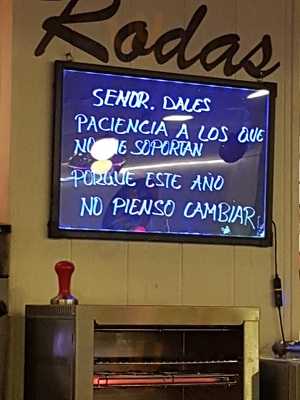 Rodas
SEÑOR. DALES
PACIENCIA A LOS QUE
NO ME SOPORTAN
PORQUE ESTE AÑO
NO PIENSO CAMBIAR